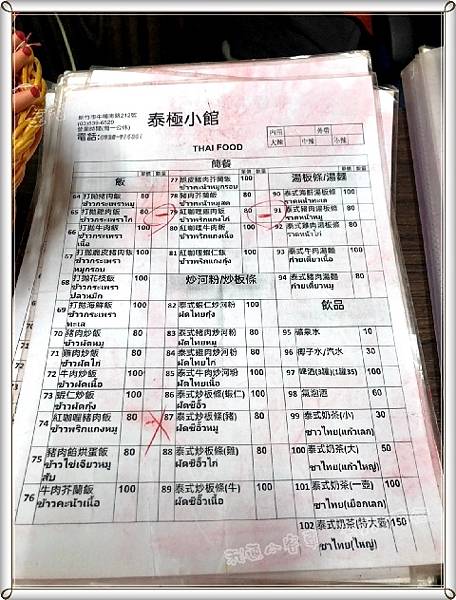 新竹市牛埔南路212號
(03)539-6529
營業時間(周一公休)
電話:
泰極小館
THAI FOOD
內用 外帶
大辣 中辣 小辣
簡餐
飯 單價 數量
64 打拋豬肉飯 80
ข้าวกระเพราหมู
65 打拋雞肉飯 80
ข้าวกระเพราไก่
66 打拋牛肉飯 100
ข้าวกระเพราเนื้อ
67 打拋脆皮豬肉飯 80
ข้าวกระเพรา
หมูกรอบ
68 打拋花枝飯 80
ข้าวกระเพรา
ปลาหมึก
69 打拋海鮮飯 80
ข้าวกระเพรา
ทะเล
70 豬肉炒飯 80
ข้าวผัดหมู
71 雞肉炒飯 80
ข้าวผัดไก่
72 牛肉炒飯 100
ข้าวผัดเนื้อ
73 蝦仁炒飯 100
ข้าวผัดกุ้ง
74 紅咖喱豬肉飯 80
ข้าวพริกแกงหมู
75 豬肉餡烘蛋飯 80
ข้าวไข่เจียวหมู
สับ
76 牛肉芥蘭飯 100
ข้าวคะน้าเนื้อ
單價 數量
77 脆皮豬肉芥蘭飯 80
ข้าวคะน้าหมูกรอบ
78 豬肉芥蘭飯 80
ข้าวคะน้าหมูสด
79 紅咖喱雞肉飯 80
ข้าวพริกแกงไก่
80 紅咖喱牛肉飯 100
ข้าวพริกแกงเนื้อ
81 紅咖喱蝦仁飯 100
ข้าวพริกแกงกุ้ง
炒河粉/炒板條
82 泰式蝦仁炒河粉 100
ผัดไทยกุ้ง
83 泰式豬肉炒河粉 80
ผัดไทยหมู
84 泰式雞肉炒河粉 80
ผัดไทยไก่
85 泰式牛肉炒河粉 100
ผัดไทยเนื้อ
86 泰式炒板條(蝦仁) 100
ผัดซีอิ้ว
87 泰式炒板條(豬) 80
ผัดซีอิ้วหมู
88 泰式炒板條(雞) 80
ผัดซีอิ้วไก่
89 泰式炒板條(牛) 100
ผัดซีอิ้วเนื้อ
湯板條/湯麵 單價 數量
90 泰式海鮮湯板條 80
ราดหน้าทะเล
91 泰式豬肉湯板條 80
ราดหน้าหมู
92 泰式雞肉湯板條 80
ราดหน้าไก่
93 泰式牛肉湯麵 100
ก๋ายเตี๋ยวเนื้อ
94 泰式豬肉湯麵 80
ก๋ายเตี๋ยวหมู
飲品
95 礦泉水 10
96 椰子水/汽水 30
97 啤酒(3罐)(1罐35) 100
98 氣泡酒 60
99 泰式奶茶(小) 30
ชาไทย(แก้วเล็ก)
100 泰式奶茶(大) 50
ชาไทย(แก้วใหญ่)
101 泰式奶茶(一壺) 100
ชาไทย(เยือกเลก)
102 泰式奶茶(特大壺) 150
ชาไทย(ใหญ่)